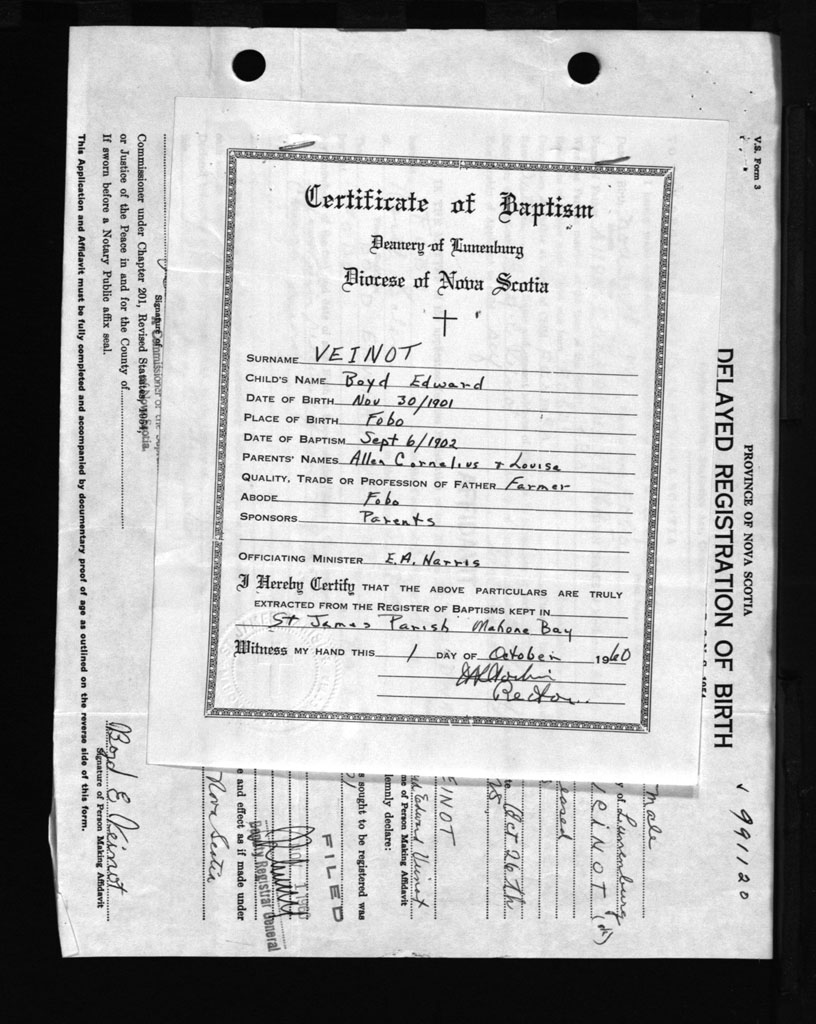 Certificate of Baptism
Deanery of Lunenburg
Diocese of Nova Scotia
SURNAME VEINOT
CHILD'S NAME Boyd Edward
DATE OF BIRTH Nov 30/1901
PLACE OF BIRTH Fobo
DATE OF BAPTISM Sept 6/1902
PARENTS' NAMES Allen Cornelius & Louisa
QUALITY, TRADE OR PROFESSION OF FATHER Farmer
ABODE Fobo
SPONSORS Parents
OFFICIATING MINISTER E.A. Harris
I Hereby Certify THAT THE ABOVE PARTICULARS ARE TRULY
EXTRACTED FROM THE REGISTER OF BAPTISMS KEPT IN
St James Parish Mahone Bay
Witness MY HAND THIS 1 DAY OF October 1960
Rector
V.S. Form 3
PROVINCE OF NOVA SCOTIA
DELAYED REGISTRATION OF BIRTH
991120
male
y of Lunenburg
EINOT
Oct 26th
EINOT
Edward Veinot
ns of Person Making Affidavit
lemnly declare:
s sought to be registered was
FILED
Deputy Registrar General
e and effect as if made under
Nova Scotia
Signature of
Commissioner under Chapter 201, Revised Statutes, 1954,
or Justice of the Peace in and for the County of
If sworn before a Notary Public affix seal.
Boyd E Veinot
Signature of Person Making Affidavit
This Application and Affidavit must be fully completed and accompanied by documentary proof of age as outlined on the reverse side of this form.